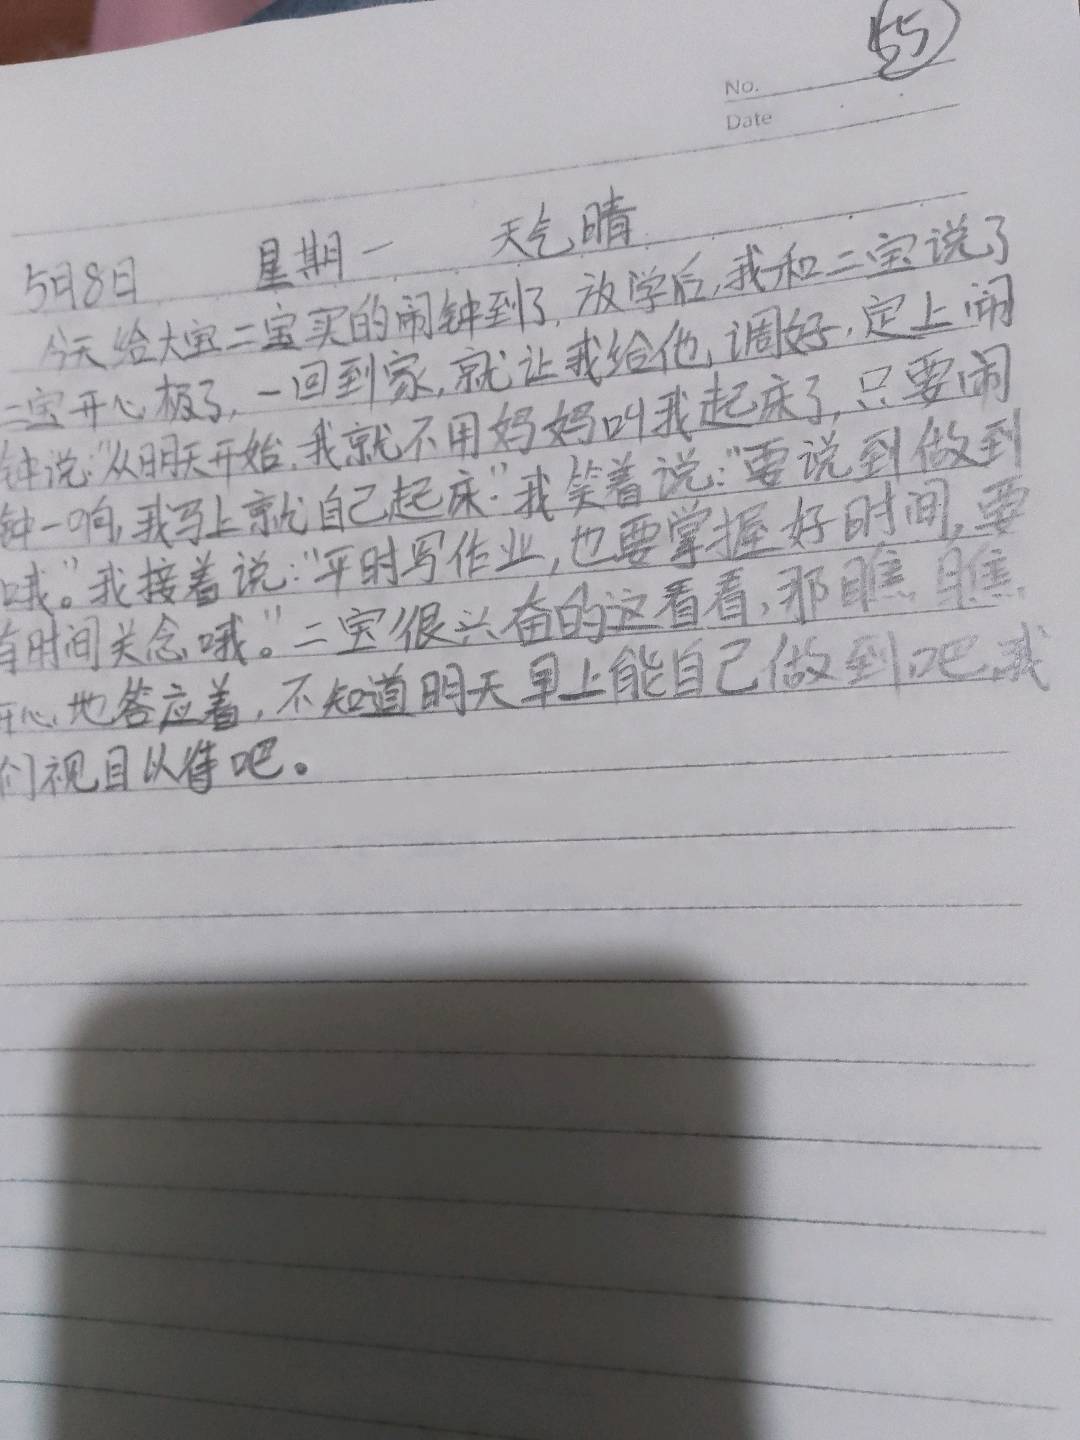 55
No.
Date
5月8日 星期一 天气晴
今天给大宝二宝买的闹钟到了,放学后,我和二宝说了
二宝开心极了,一回到家,就让我给他,调好,定上闹
钟说:"从明天开始,我就不用妈妈叫我起床了,只要闹
钟一响,我马上就自己起床."我笑着说:"要说到做到
哦。"我接着说:"平时写作业,也要掌握好时间,要
有时间关念哦。"二宝很兴奋的这看看,那瞧瞧
开心地答应着,不知道明天早上能自己做到吧,我
们视目以待吧。